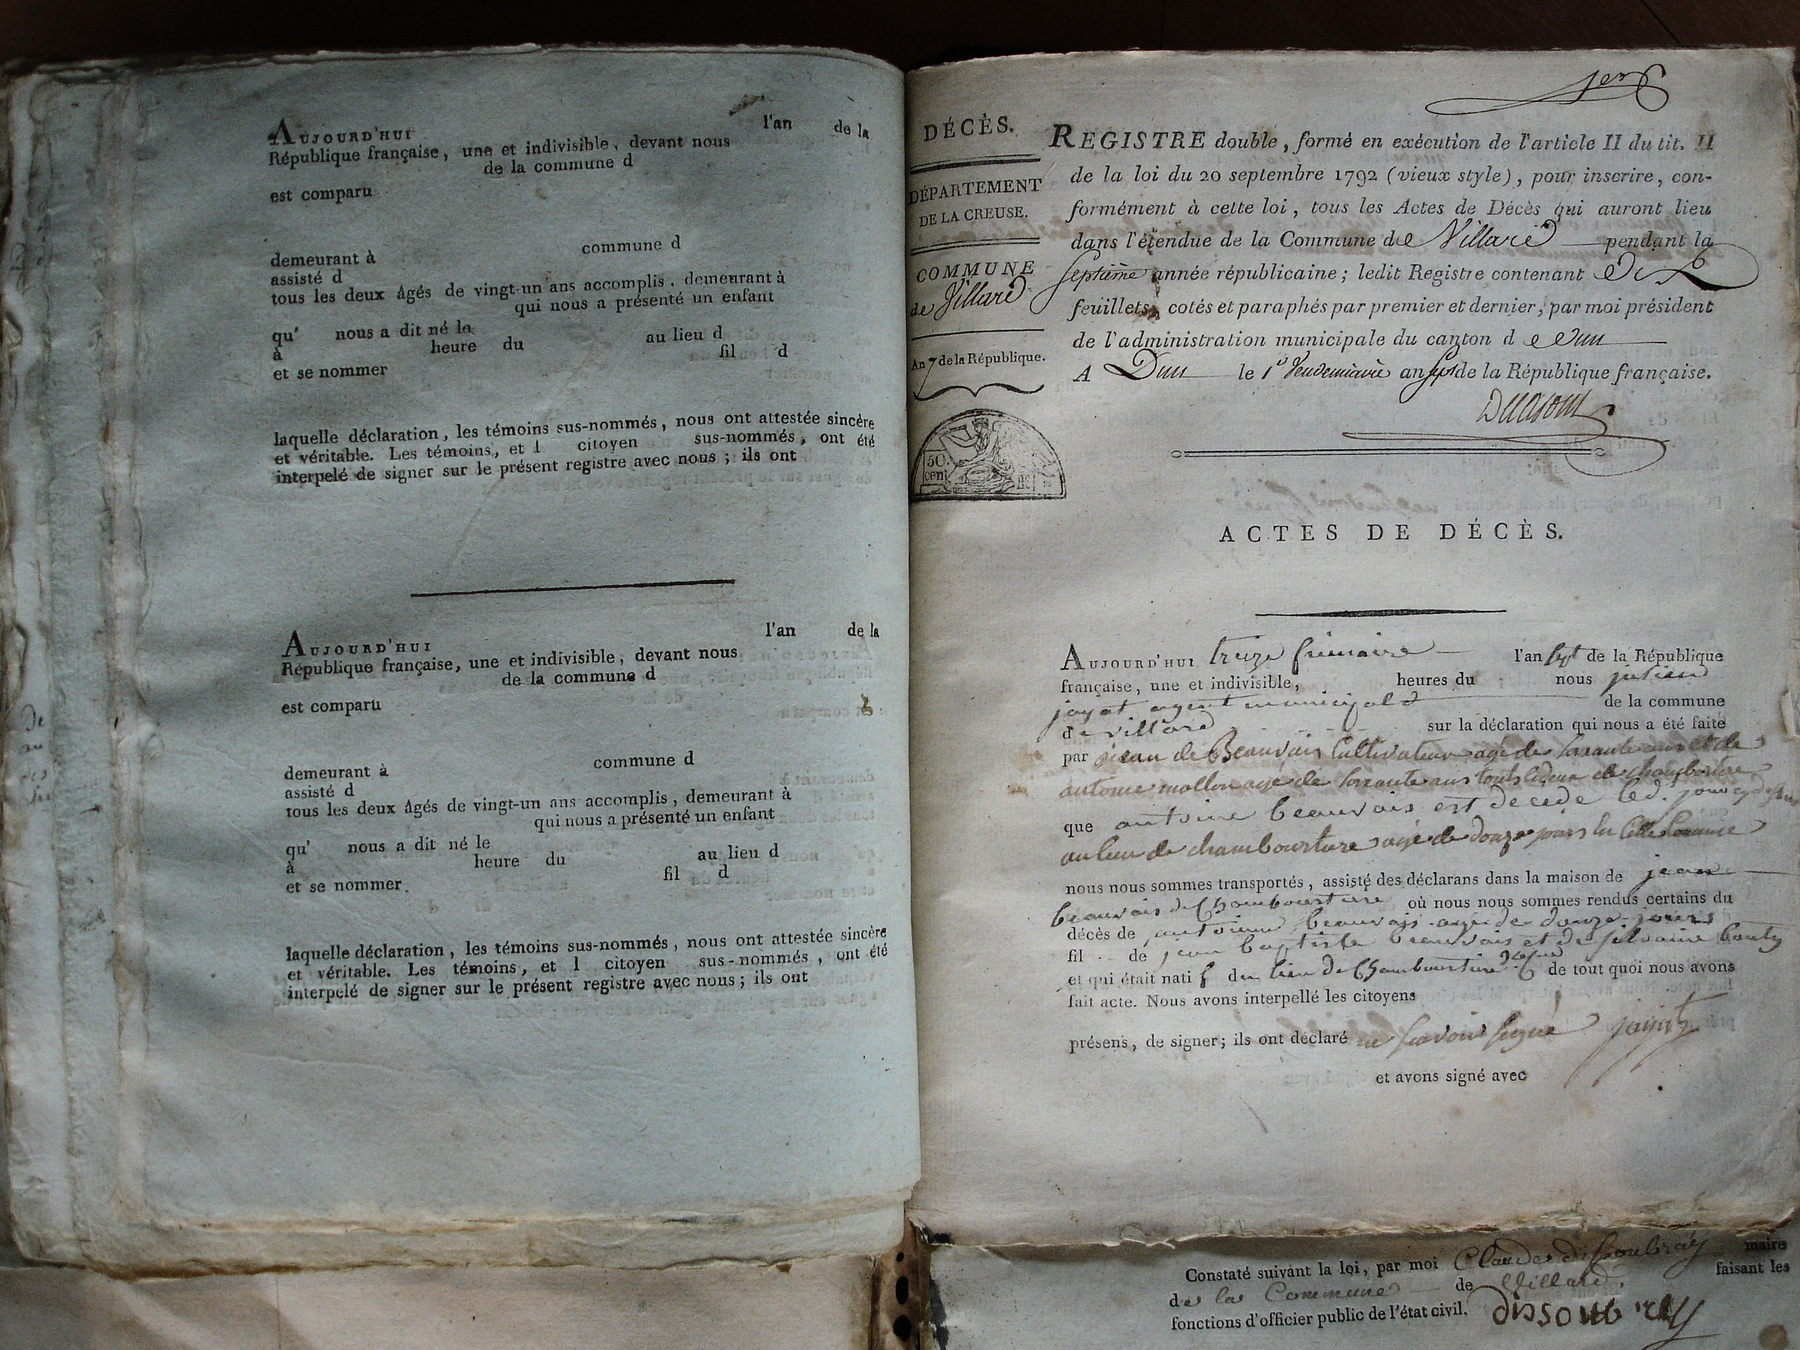 AUJOURD'HUI l'an de la
République française, une et indivisible, devant nous
de la commune d
est comparu
demeurant à commune d
assisté d
tous les deux âgés de vingt-un ans accomplis, demeurant à
qui nous a présenté un enfant
qu' nous a dit né le
à heure du au lieu d
et se nommer fil d
laquelle déclaration, les témoins sus-nommés, nous ont attestée sincère
et véritable. Les témoins, et l citoyen sus-nommés, ont été
interpelé de signer sur le présent registre avec nous ; ils ont
AUJOURD'HUI l'an de la
République française, une et indivisible, devant nous
de la commune d
est comparu
demeurant à commune d
assisté d
tous les deux âgés de vingt-un ans accomplis, demeurant à
qui nous a présenté un enfant
qu' nous a dit né le
à heure du au lieu d
et se nommer fil d
laquelle déclaration, les témoins sus-nommés, nous ont attestée sincère
et véritable. Les témoins, et l citoyen sus-nommés, ont été
interpelé de signer sur le présent registre avec nous ; ils ont
1er
DÉCÈS.
DÉPARTEMENT
DE LA CREUSE.
COMMUNE
de Villard
An 7 de la République.
50
cent
REGISTRE double, formé en exécution de l'article II du tit. II
de la loi du 20 septembre 1792 (vieux style), pour inscrire, con-
formément à cette loi, tous les Actes de Décès qui auront lieu
dans l'étendue de la Commune de Villard pendant la
septième année républicaine ; ledit Registre contenant
feuillets, cotés et paraphés par premier et dernier, par moi président
de l'administration municipale du canton de dun
A Dun le 1er Vendemiaire an sept de la République française.
ACTES DE DÉCÈS.
AUJOURD'HUI treize frimaire l'an sept de la République
française, une et indivisible, heures du nous
jayot agent municipal de la commune
de villard sur la déclaration qui nous a été faite
par jean de Beauvais cultivateur agé de trante ans et de
antoine mallon agé de trante ans touts deux de chambourture
que antoine beauvais est décédé led. jour
au lieu de chambourture agé de douze jours
nous nous sommes transportés, assisté des déclarans dans la maison de jean
beauvais de Chambourture où nous nous sommes rendus certains du
décès de antoine beauvais agé de douze jours
fil de jean baptiste beauvais et de silvaine
et qui était nati f du lieu de Chambourture de tout quoi nous avons
fait acte. Nous avons interpellé les citoyens
présens, de signer ; ils ont déclaré ne savoir signé jayot
et avons signé avec
Constaté suivant la loi, par moi Claude dissoubray maire
de la Commune de Villard. faisant les
fonctions d'officier public de l'état civil. dissoubray